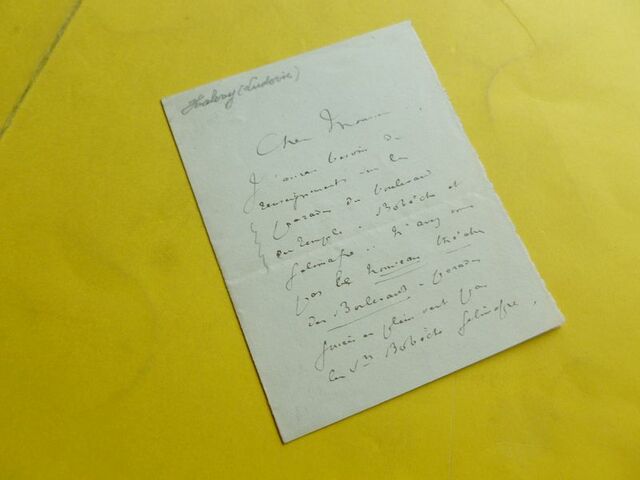 Halévy (Ludovic)
Cher Monsieur,
J'aurais besoin de
renseignements sur les
parades du boulevard
du Temple. Bobèche et
Galimafré.. N'avez vous
pas le nouveau théâtre
des Boulevards - parades
en plein vent par
les Srs Bobèche Galimafré,